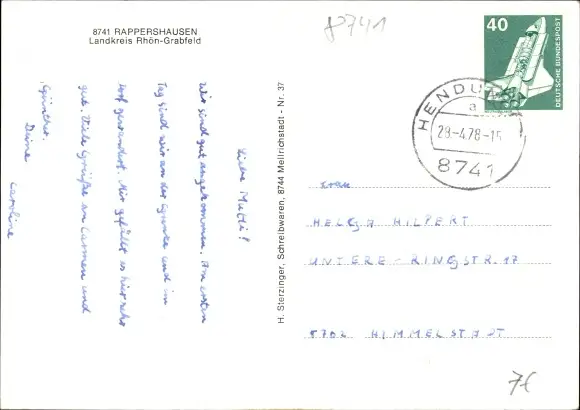 8741 RAPPERSHAUSEN
Landkreis Rhön-Grabfeld
8741
40
DEUTSCHE BUNDESPOST
HENDUNGEN
a
29.-4.78-15
8741
Liebe Mutti!
Wir sind gut angekommen. Am ersten
Tag sind wir an der und im
Dorf gewandert. Mir gefällt es hier sehr
gut. Viele Grüße an Carmen und
Günther.
Deine
Caroline
H. Sterzinger, Schreibwaren, 8744 Mellrichstadt - Nr. 37
Frau
HELGA HILPERT
UNTERE-RINGSTR. 17
8702 HIMMELSTADT
7€